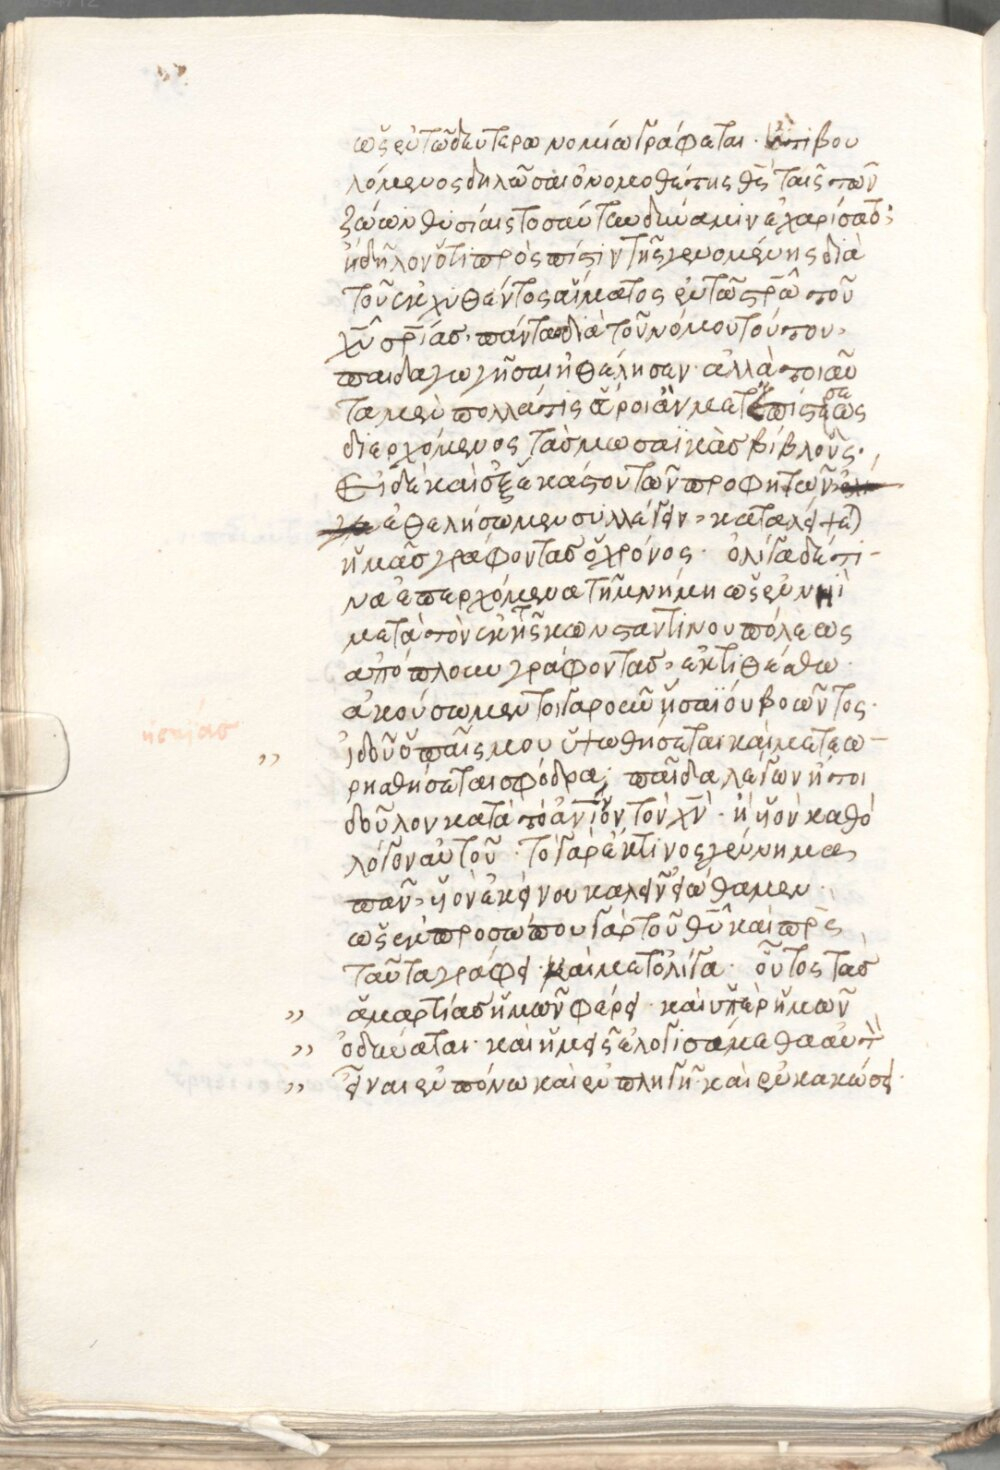 ὡς ἐν τῶ δευτερονομίω γράφεται · τί βου
λόμενος δηλῶσαι ὁ νομοθέτης θς̅ ταῖς τῶν
ζώων θυσίαις τοσαύτην δύναμιν ἐχαρίσατο;
ἢ δῆλον ὅτι πρὸς πίστιν τῆς γενομένης διὰ
τοῦ ἐκχυθέντος αἵματος ἐν τῶ στρω̅ τοῦ
χυ̅ σρίας· πάντα διὰ τοῦ νόμου τούτου
παιδαγωγῆσαι ἠθέλησεν · ἀλλὰ τοιαῦ
τα μὲν πολλά τις εὕροι ἂν μετ' ἐπιστασίας
διερχόμενος τὰς μωσαϊκὰς βίβλους ·
Εἰ δὲ καὶ ἐξ ἑκάστου τῶν προφητῶν
ἐθελήσωμεν συλλέγειν, καταλείψει
ἡμᾶς γράφοντας ὁ χρόνος · ὀλίγα δέ τι
να ἐπερχόμενα τῆ μνήμη ὡς ἐν νηῒ
μετὰ τὸν ἐκ τῆς κωνσταντίνου πόλεως
ἀπόπλουν γράφοντας, ἐκτιθέσθω ·
ἀκούσωμεν τοιγαροῦν ἡσαΐου βοῶντος ·
ησαΐας
,, ἰδοῦ ὁ παῖς μου ὑψωθήσεται καὶ μετεω
ρισθήσεται σφόδρα; παῖδα λέγων ἤτοι
δοῦλον κατὰ τὸ ἀν̅ιον τὸν χν̅ · ἢ υἱὸν καθὸ
λόγον αὐτοῦ · τὸ γὰρ ἔκ τινος γέννημα
πᾶν, υἱὸν ἐκείνου καλεῖν εἰώθαμεν ·
ὡς ἐκ προσώπου γὰρ τοῦ θυ̅ καὶ πρς̅
ταῦτα γράφει · καὶ μετ' ὀλίγα · οὗτος τὰς
,, ἁμαρτίας ἡμῶν φέρει · καὶ ὑπὲρ ἡμῶν
,, ὀδυνᾶται · καὶ ἡμεῖς ἐλογισάμεθα αὐτὸν
,, εἶναι ἐν πόνω καὶ ἐν πληγῆ καὶ ἐν κακώσει ·